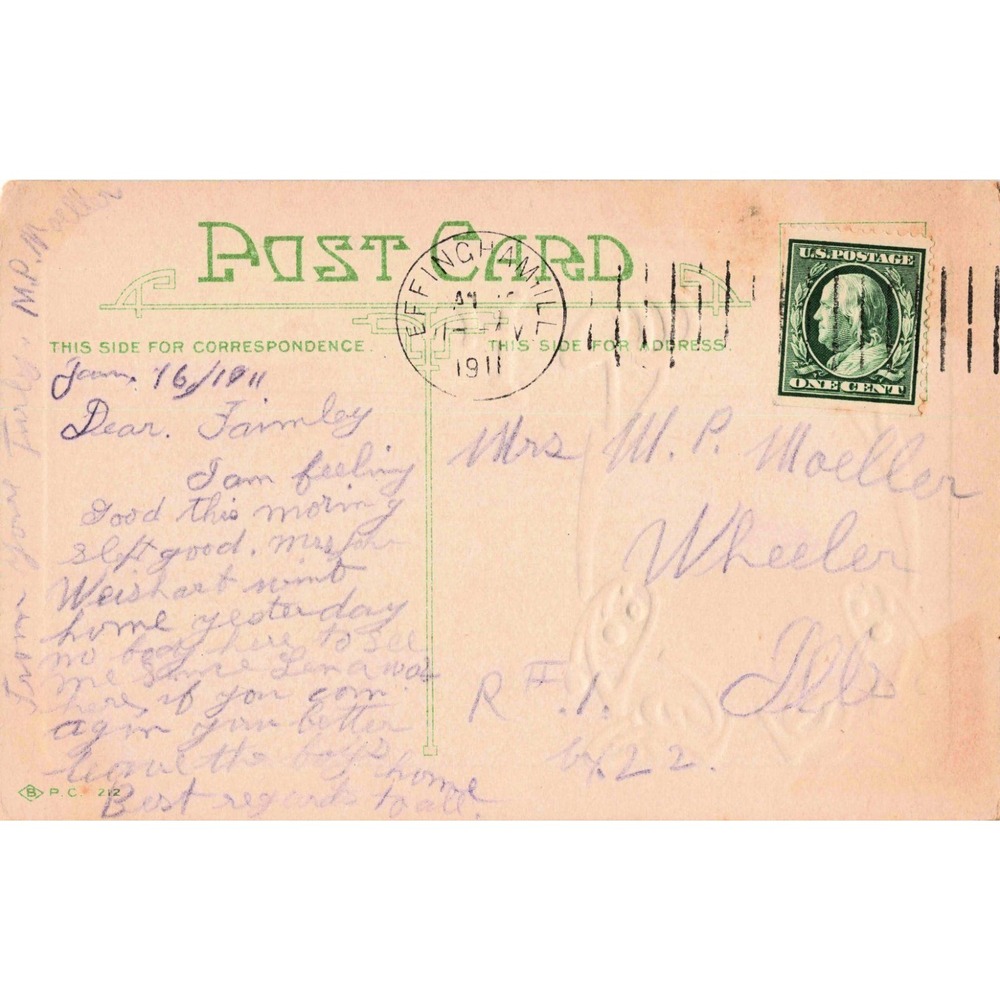 POST CARD
THIS SIDE FOR CORRESPONDENCE.
THIS SIDE FOR ADDRESS.
EFFINGHAM, ILL
1911
U.S. POSTAGE
ONE CENT
Jan, 16/1911
Dear. Faimley
I am feeling
Good this morning
slept good. Mrs John
Weishart wint
home yesterday
no body here to see
me since Lena was
here, if you com
agin you better
leave the boys home
Best regards to all.
From your Truly, M.P. Moeller
Mrs M. P. Moeller
Wheeler
Ill
R F. 1.
bx 22.
B P.C. 212